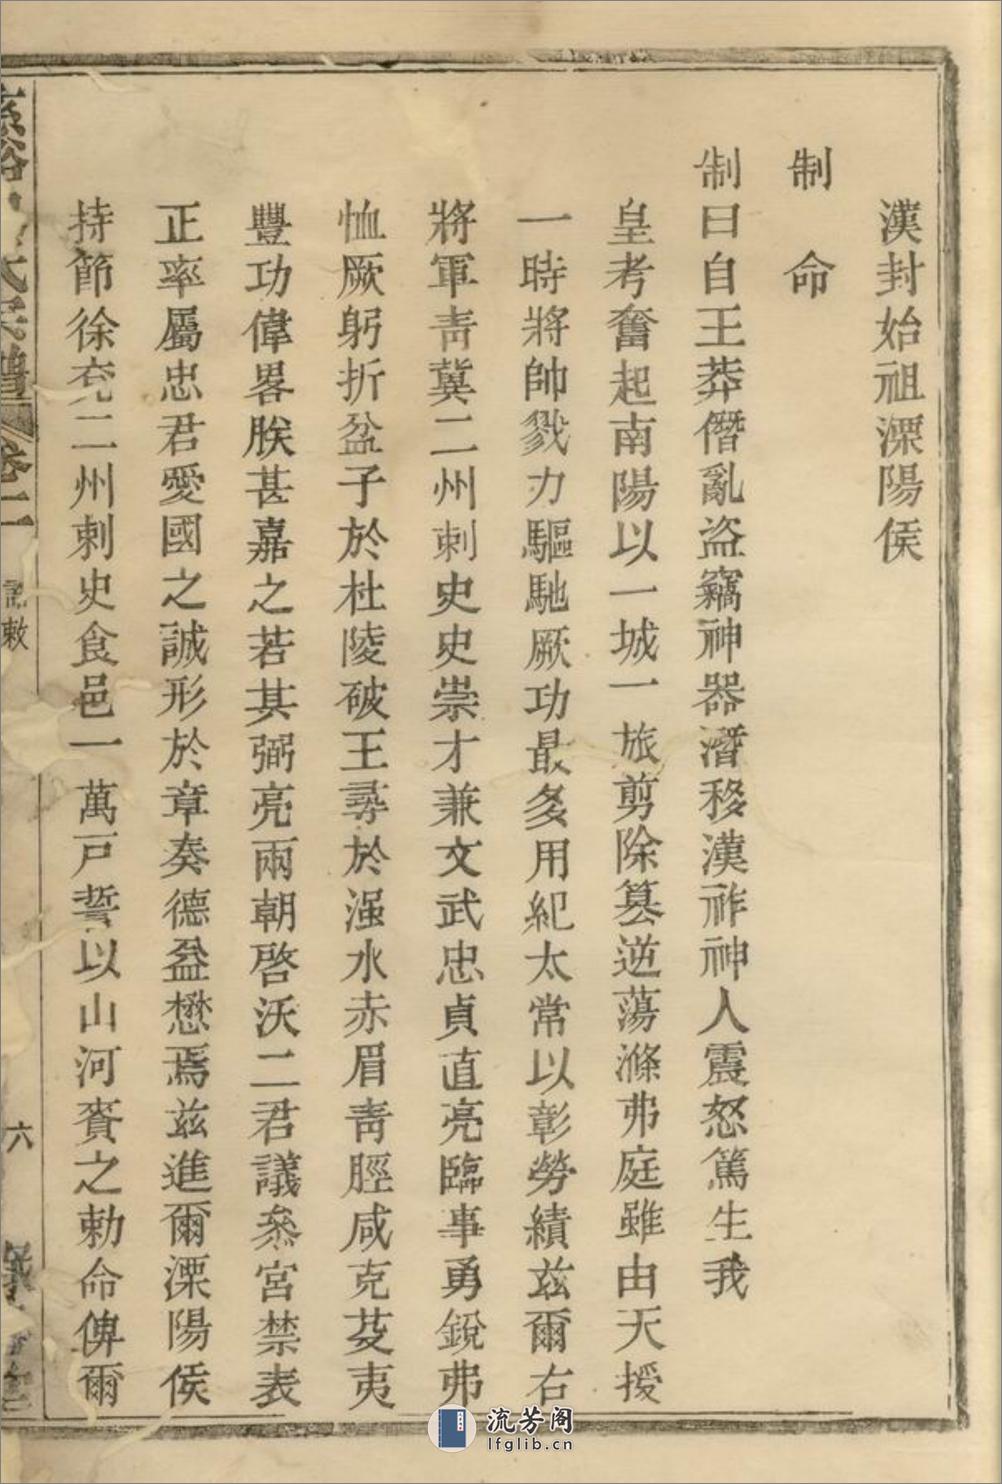 漢封始祖溧陽侯
制命
制曰自王莽僭亂盜竊神器潛移漢祚神人震怒篤生我
皇考奮起南陽以一城一旅剪除篡逆蕩滌弗庭雖由天授
一時將帥戮力驅馳厥功最多用紀太常以彰勞績茲爾右
將軍青冀二州刺史史崇才兼文武忠貞直亮臨事勇銳弗
恤厥躬折盆子於杜陵破王尋於滍水赤眉青脛咸克芟夷
豐功偉畧朕甚嘉之若其弼亮兩朝啓沃二君議叅宮禁表
正率屬忠君愛國之誠形於章奏德益懋焉茲進爾溧陽侯
持節徐兗二州刺史食邑一萬戸誓以山河賚之勅命俾爾
氏宗譜
卷一
敕
六
流芳阁
lfglib.cn